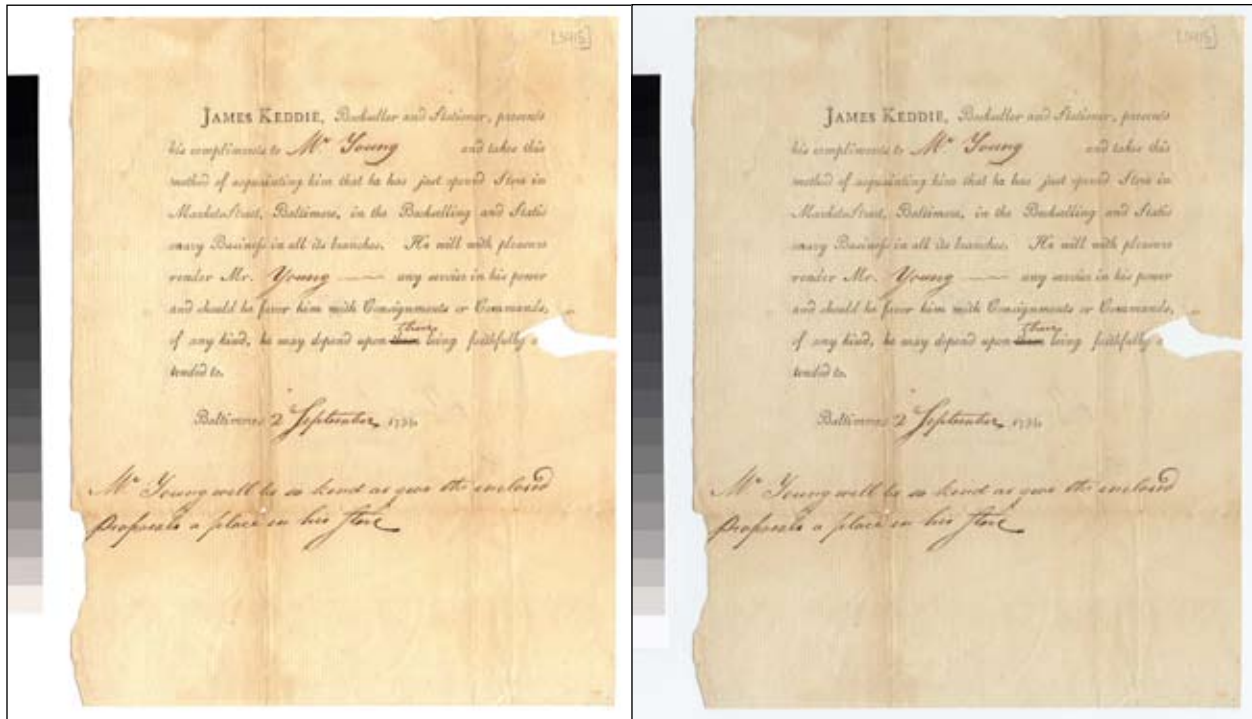 [5915]
JAMES KEDDIE, Bookseller and Stationer, presents
his compliments to Mr. Young and takes this
method of acquainting him that he has just opened Store in
Market-Street, Baltimore, in the Bookselling and Statio
nary Business in all its branches. He will with pleasure
render Mr. Young any service in his power
and should he favor him with Consignments or Commands,
of any kind, he may depend upon their being faithfully a
tended to.
Baltimore 2d September,
Mr. Young will be so kind as give the enclosed
Proposals a place in his Store
[5915]
JAMES KEDDIE, Bookseller and Stationer, presents
his compliments to Mr. Young and takes this
method of acquainting him that he has just opened Store in
Market-Street, Baltimore, in the Bookselling and Statio
nary Business in all its branches. He will with pleasure
render Mr. Young any service in his power
and should he favor him with Consignments or Commands,
of any kind, he may depend upon their being faithfully a
tended to.
Baltimore 2d September,
Mr. Young will be so kind as give the enclosed
Proposals a place in his Store